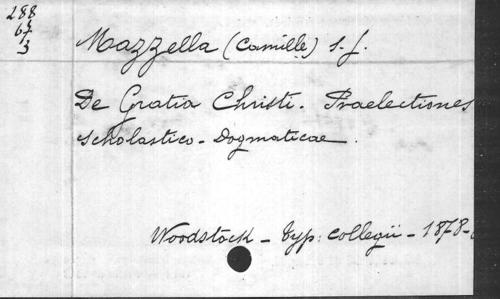 288
67
3
Mazzella (Camille) S. J.
De Gratia Christi. Praelectiones
scholastico-Dogmaticae.
Woodstock - typ: collegii - 1878-